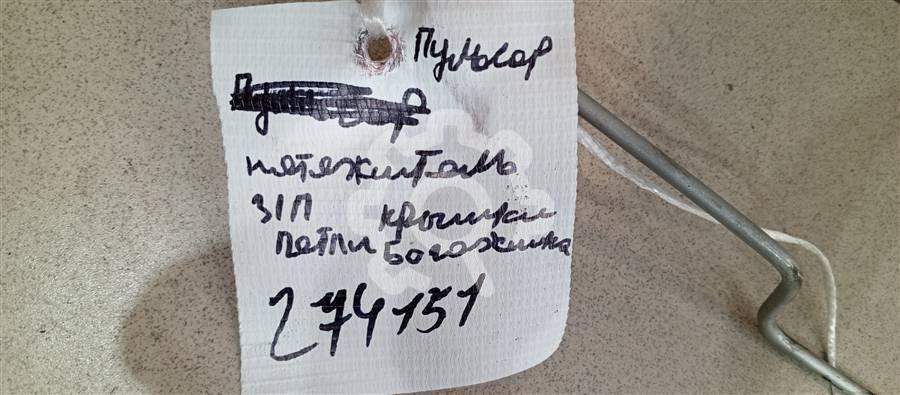 Пульсар
натяжитель
З/П крышки
петли багажника
274151